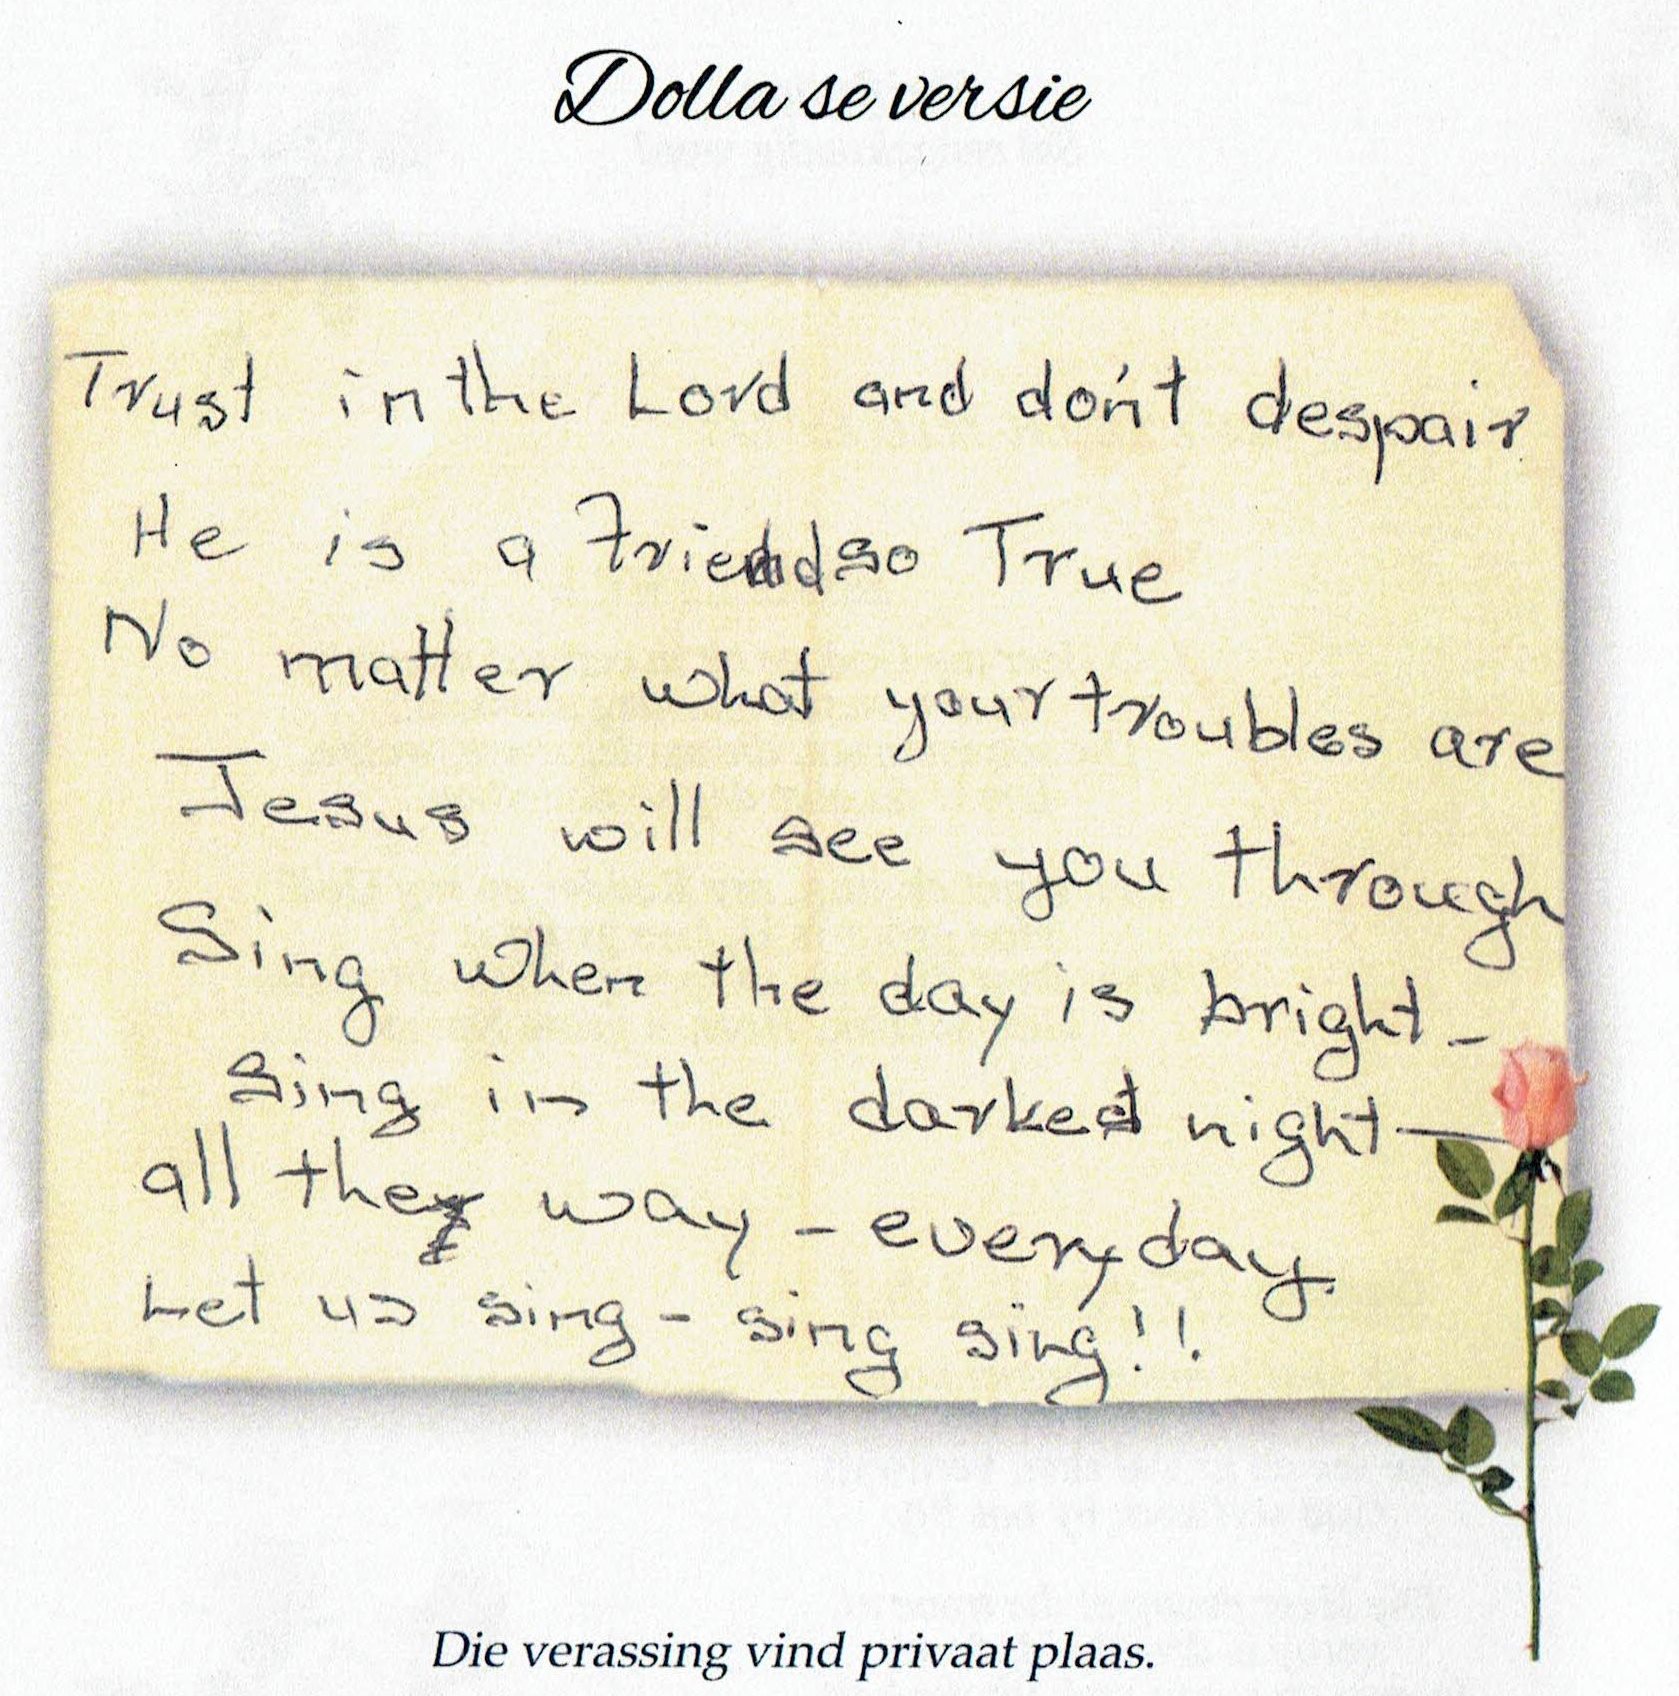 Dolla se versie
Trust in the Lord and don't despair
He is a Friend so True
No matter what your troubles are
Jesus will see you through
Sing when the day is bright -
Sing in the darkest night —
all the way - everyday.
Let us sing - sing sing!!
Die verassing vind privaat plaas.